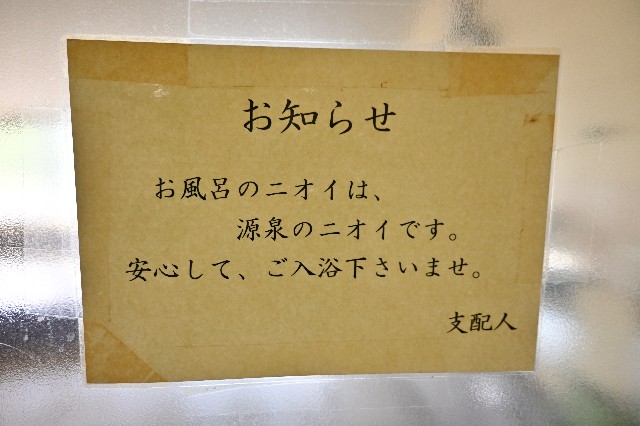 お知らせ
お風呂のニオイは、
源泉のニオイです。
安心して、ご入浴下さいませ。
支配人